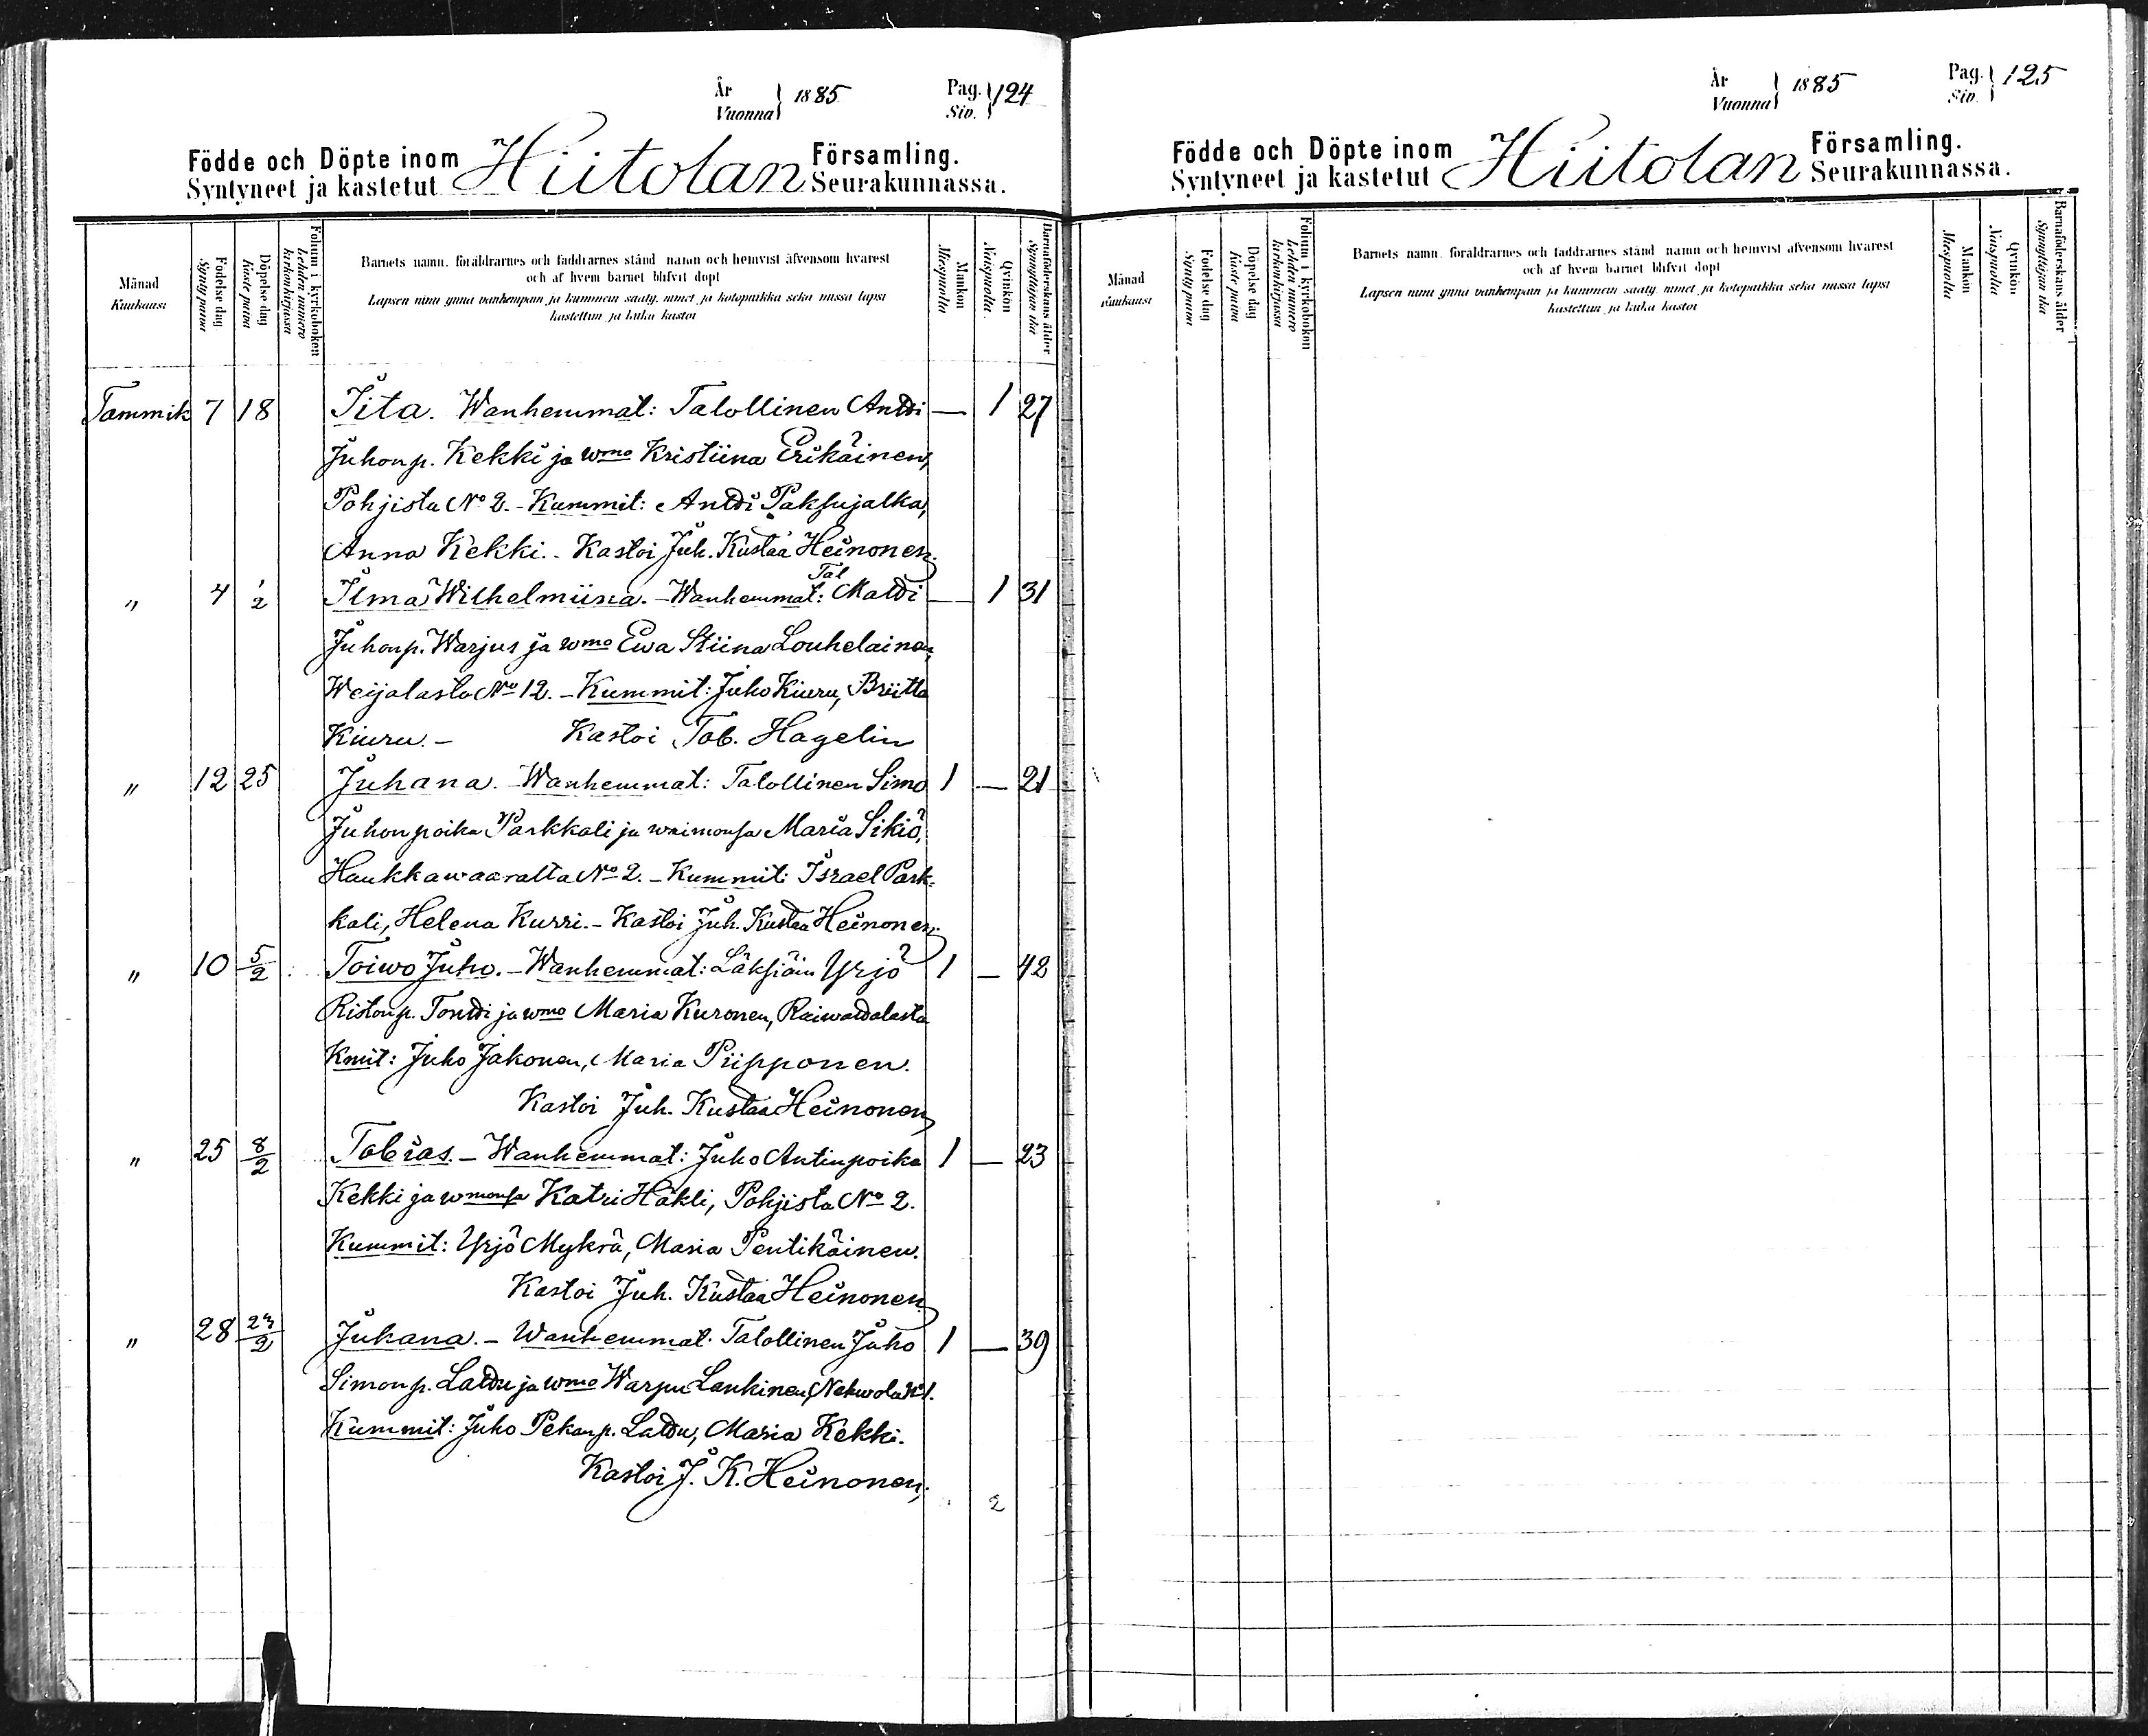 År
Vuonna 1885
Pag.
Siv. 124
Födde och Döpte inom Hiitolan Församling.
Syntyneet ja kastetut Seurakunnassa.
Månad
Kuukausi
Födelse dag
Synty päivä
Döpelse dag
Kaste päivä
Folium i kyrkoboken
Lehden numero
kirkonkirjassa
Barnets namn, föräldrarnes och faddrarnes stånd namn och hemvist äfvensom hvarest
och af hvem barnet blifvit döpt
Lapsen nimi ynnä vanhempain ja kummein sääty, nimet ja kotopaikka sekä missä lapsi
kastettiin ja kuka kastoi
Mankön
Miespuolia
Qvinkön
Naispuolia
Barnaföderskans ålder
Synnyttäjän ikä
Tammik 7 18 Iita. Wanhemmat: Talollinen Antti — 1 27
Juhonp. Kekki ja wmo Kristiina Erikäinen,
Pohjista No 2. - Kummit: Antti Paksujalka,
Anna Kekki. - Kastoi Juh. Kustaa Heinonen.
" 4 1/2 Ilma Wilhelmiina. - Wanhemmat: Tal Matti — 1 31
Juhonp. Warjus ja wmo Ewa Stiina Louhelainen,
Weijalasta No 12. - Kummit: Juho Kiuru, Briitta
Kiuru. - Kastoi Tob. Hagelin
" 12 25 Juhana. - Wanhemmat: Talollinen Simo 1 — 21
Juhonpoika Parkkali ja waimonsa Maria Sikiö,
Haukkawaaralta No 2. - Kummit: Israel Park-
kali, Helena Kurri. - Kastoi Juh. Kustaa Heinonen.
" 10 5/2 Toiwo Juho. - Wanhemmat: Läksiäin Yrjö 1 — 42
Ristonp. Tontti ja wmo Maria Kuronen, Raiwattalasta
Kmit: Juho Jakonen, Maria Piipponen.
Kastoi Juh. Kustaa Heinonen
" 25 8/2 Tobias. - Wanhemmat: Juho Antinpoika 1 — 23
Kekki ja wmonsa Katri Häkli, Pohjista No 2.
Kummit: Yrjö Mykrä, Maria Pentikäinen.
Kastoi Juh. Kustaa Heinonen
" 28 23/2 Juhana. - Wanhemmat: Talollinen Juho 1 — 39
Simonp. Lattu ja wmo Warpu Lankinen, Nehwola No 1.
Kummit: Juho Pekanp. Lattu, Maria Kekki.
Kastoi J. K. Heinonen,
2
År
Vuonna 1885
Pag.
Siv. 125
Födde och Döpte inom Hiitolan Församling.
Syntyneet ja kastetut Seurakunnassa.
Månad
Kuukausi
Födelse dag
Synty päivä
Döpelse dag
Kaste päivä
Folium i kyrkoboken
Lehden numero
kirkonkirjassa
Barnets namn, föräldrarnes och faddrarnes stånd namn och hemvist äfvensom hvarest
och af hvem barnet blifvit döpt
Lapsen nimi ynnä vanhempain ja kummein sääty, nimet ja kotopaikka sekä missä lapsi
kastettiin ja kuka kastoi
Mankön
Miespuolia
Qvinkön
Naispuolia
Barnaföderskans ålder
Synnyttäjän ikä